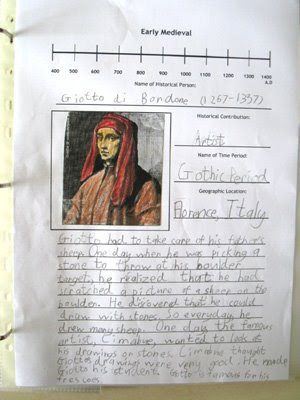 Early Medieval
400 500 600 700 800 900 1000 1100 1200 1300 1400
A.D
Name of Historical Person:
Giotto di Bondone (1267-1337)
Historical Contribution:
Artist
Name of Time Period:
Gothic Period
Geographic Location:
Florence, Italy
Giotto had to take care of his father's
sheep. One day when he was picking a
stone to throw at his boulder
target, he realized that he had
scratched a picture of a sheep on the
boulder. He discovered that he could
draw with stones. So everyday, he
drew many sheep. One day the famous
artist, Cimabue, wanted to look at
his drawings on stones. Cimabue thought
Giottos drawings were very good. He made
Giotto his student. Giotto is famous for his
frescoes.